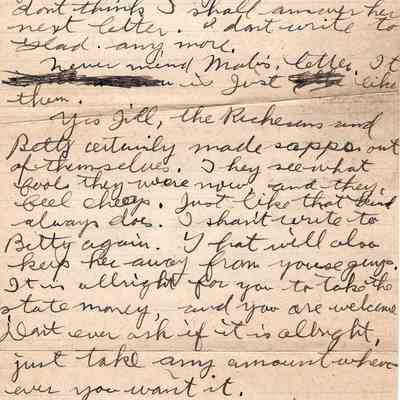 dont think I shall answer her
next letter. I dont write to
Glad any more.
Never mind Mab's. letter. It
is Just like
them.
Yes Jill, the Richesens and
Betty certainly made sappos out
of themselves. They see what
fools they were now, and they,
feel cheap. Just like that kind
always does. I shan't write to
Betty again. That will also
keep her away from youse guys.
It is allright for you to take the
state money, and you are welcome
Dont ever ask if it is allright,
just take any amount when
ever you want it.